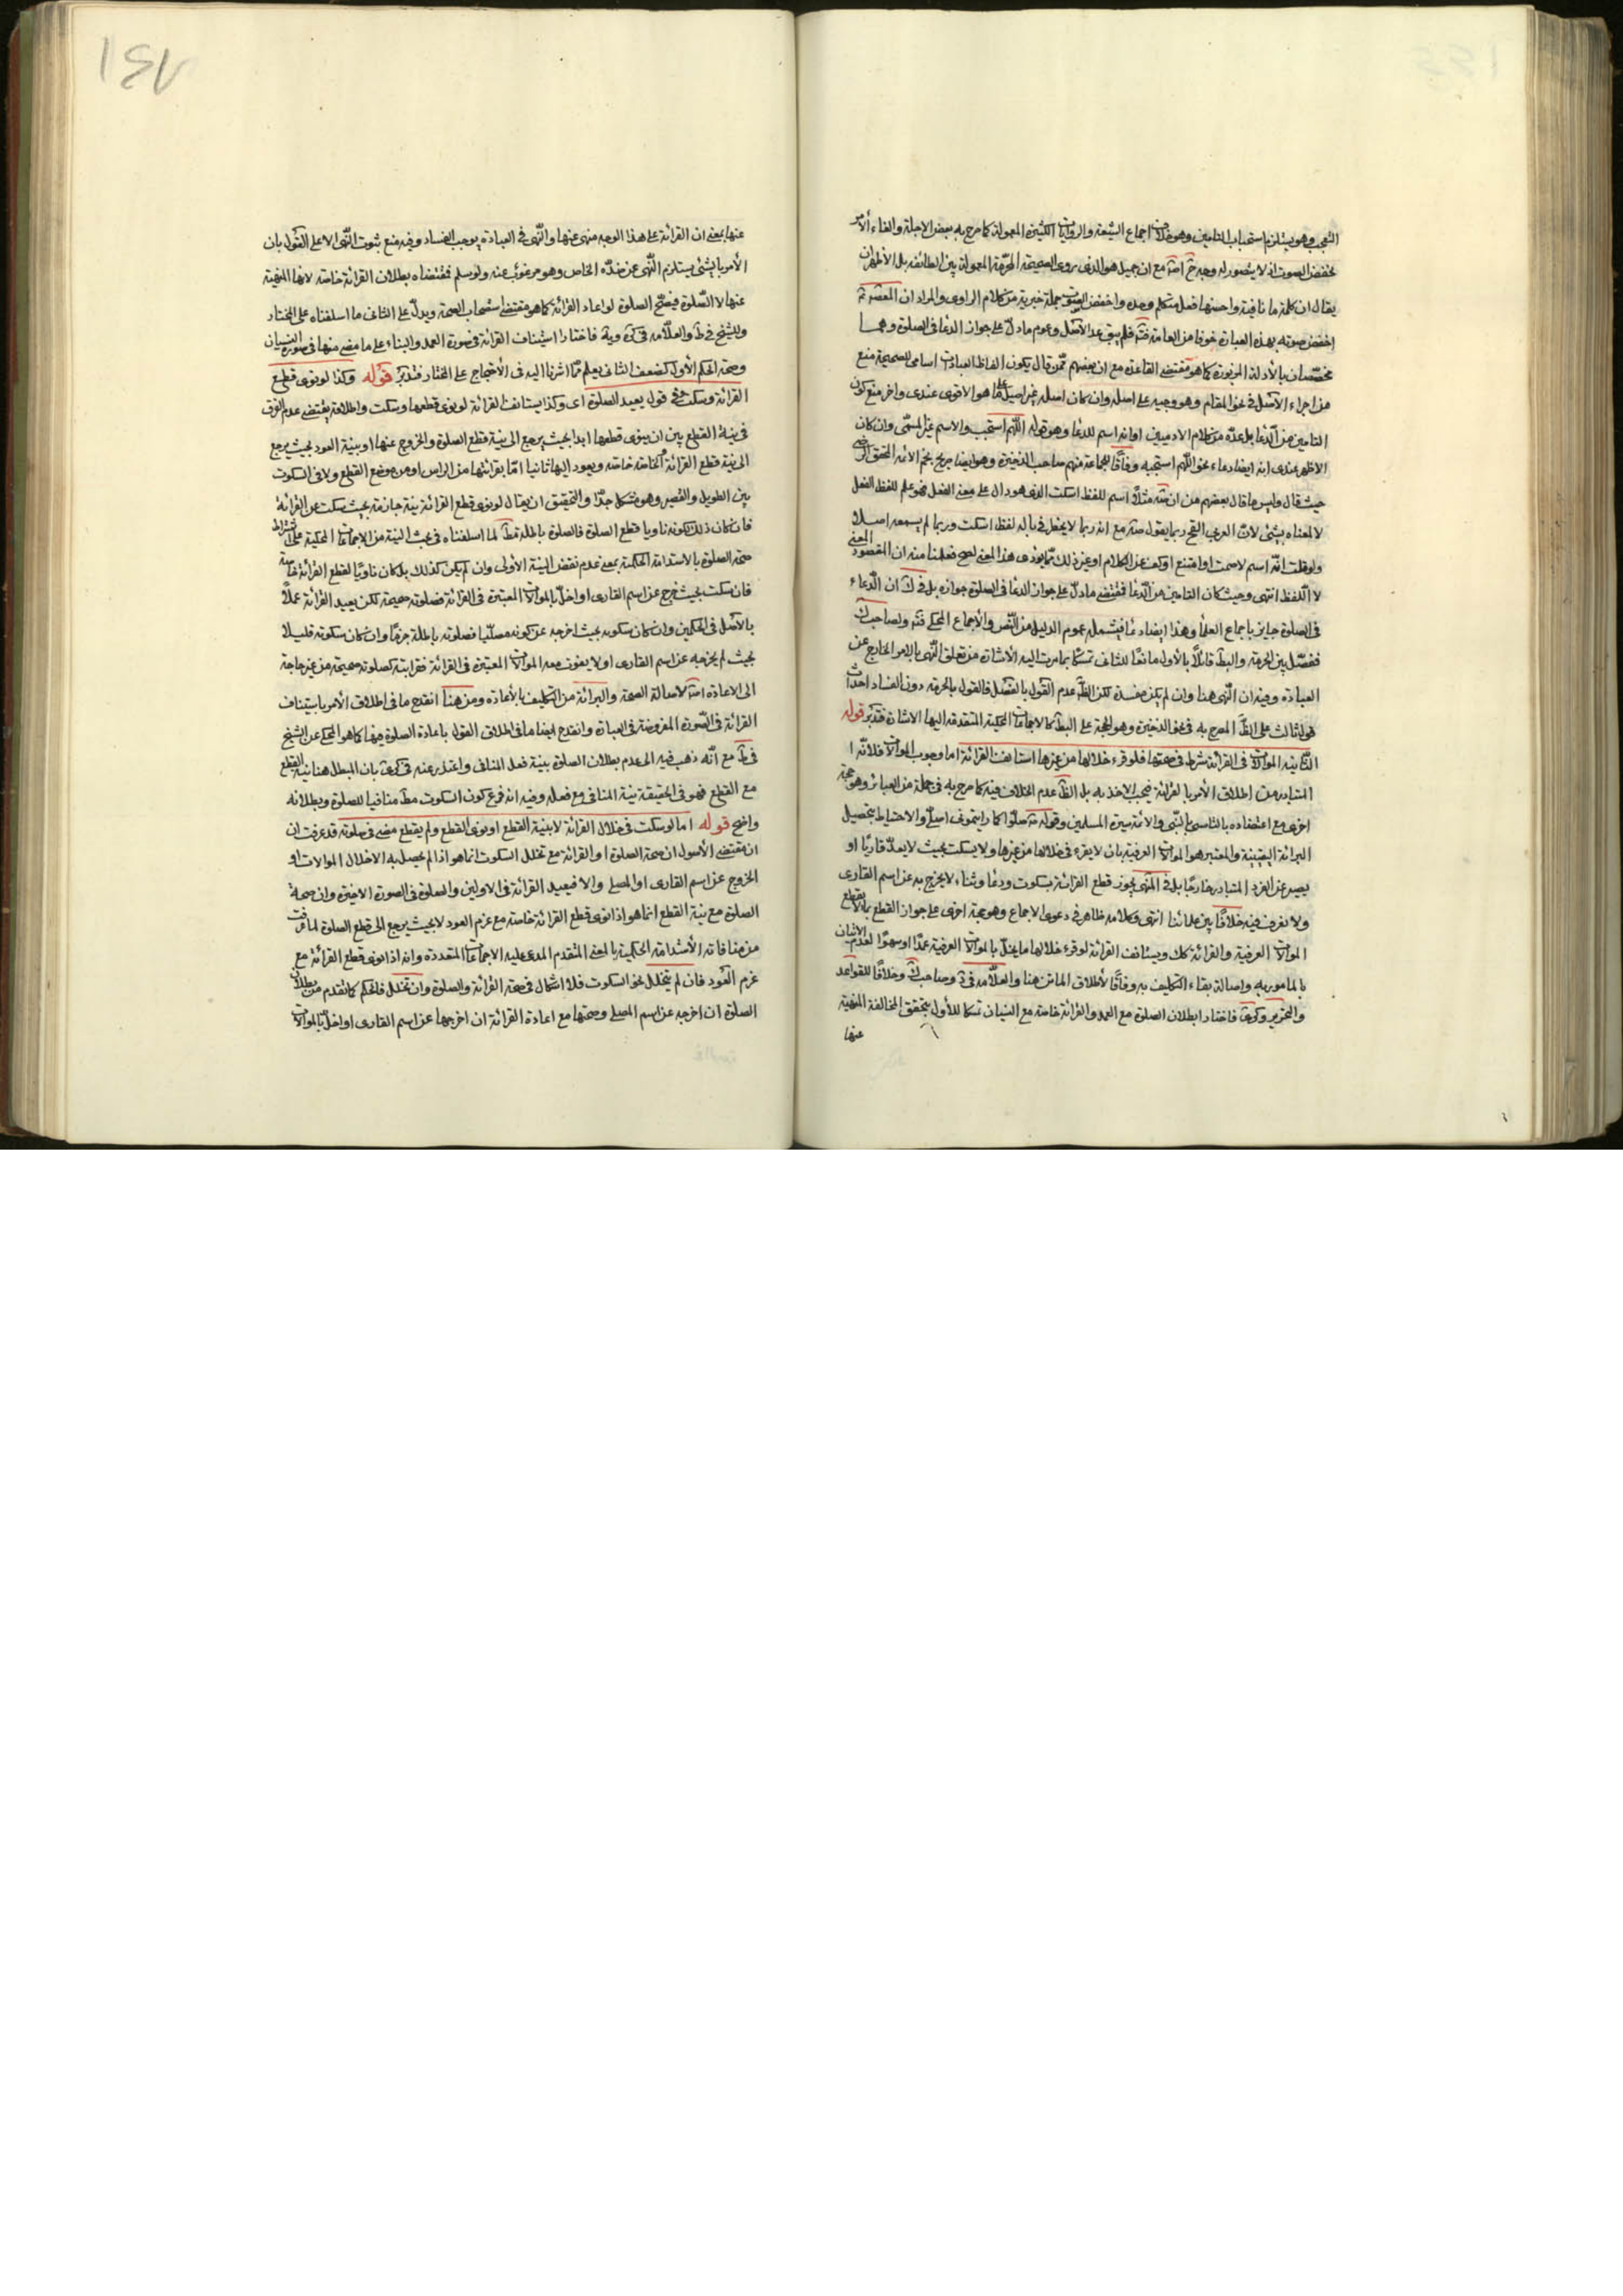 التعجب وهو يستلزم استحباب التامين وهو خلاف اجماع الشيعة والروايات الكثيرة المعمولة كما صرح به بعض الاجلة والغاء الأمر
بخفض الصوت اذ لا يتصور له وجه ح مع ان جميل هو الذى روى الصحيحة المحرّمة المعمولة بين الطائفه بل الأظهر ان
يقال ان كلمة ما نافية واحسنها فعل متكلم وحده واخفض الصوت جملة خبرية من كلام الراوى والمراد ان المعصوم
اخفض صوته بهذه العبارة خوفا من العامة فلم يبق عد الأصل وعموم ما دلّ على جواز الدعا فى الصلوة وهما
مخصّصان بالأدلة المزبورة كما هو مقتضى القاعدة مع ان بعضهم ممّن قال بكون الفاظ العبادات اسامى للصحيحة منع
من اجراء الأصل فى نحو المقام وهو وجيه على اصله وان كان اصله غير اصيل كما هو الأقوى عندى واخر منع كون
التامين من الدّعا بل عدّه من كلام الادميين او انه اسم للدعا وهو قوله اللّهم استجب والاسم غير المسمّى وان كان
الاظهر عندى انه ايضا دعاء نحو اللّهم استجبه وفاقًا لجماعة منهم صاحب الذخيرة وهو ايضا صريح نجم الائمه المحقق الرضى
حيث قال وليس ما قال بعضهم من ان صه مثلًا اسم للفظ اسكت الذى هو دال على معنى الفعل فهو علم للفظ الفعل
لا لمعناه بشئ لانّ العربى القح ربما يقول صه مع انه ربما لا يخطر فى باله لفظ اسكت وربما لم يسمعه اصلا
ولو قلت انّه اسم لاصمت او امتنع او كف عن الكلام او غير ذلك مما يؤدى هذا المعنى لصح فعلمنا منه ان المقصود المعنى
لا اللفظ انتهى وحيث كان التامين من الدّعا فمقتضى ما دلّ على جواز الدعا فى الصلوة جوازه بل فى ك ان الدّعاء
فى الصلوة جايز باجماع العلما وهذا ايضا دعا فيشمله عموم الدليل من النّص والأجماع المحكى ولصاحب ك
ففصّل بين الحرمة والبط قائلًا بالأول مانعًا للثانى تمسّكا بما مرت اليه الأشارة من تعلق النّهى بالامر الخارج عن
العبادة وفيه ان النّهى هنا وان لم يكن مفسدة لكن الظ عدم القول بالفصل فالقول بالحرمة دون الفساد احداث
قول ثالث على الظ المصرح به فى الذخيرة وهو الحجة على البط كالاجماعات المحكية المتقدمة اليها الاشارة فتدبّر قوله
الثانيه الموالات فى القرائة شرط فى صحتها فلو قرء خلالها من غيرها استانف القرائة اما وجوب الموالات فلانّه ا
المتبادر من اطلاق الأمر بالقرائة فيجب الاخذ به بل الظ عدم الخلاف فيه كما صرح به فى جملة من العبائر وهو حجة
اخرى مع اعتضاده بالتاسى بالنّبى والائمة وسيرة المسلمين وقوله صلّوا كما رايتمونى اصلّى والاحتياط بتحصيل
البرائة اليقينية والمعتبر هو الموالات العرفية بان لا يقرء فى خلالها من غيرها ولا يسكت بحيث لا يعدّ قاريًا او
يصير عن الفرد المتبادر خارجًا بل فى المنتهى يجوز قطع القرائة بسكوت ودعا وثناء لا يخرج به عن اسم القارى
ولا نعرف فيه خلافًا بين علمائنا انتهى وكلامه ظاهر فى دعوى الاجماع وهو حجة اخرى على جواز القطع بما لا يقطع
الموالات العرفية والقرائة كك ويستانف القرائة لو قرء خلالها ما يخل بالموالات العرفية عمدًا او سهوًا لعدم الاتيان
بالمامور به واصالة بقاء التكليف به وفاقًا لأطلاق الماتن هنا والعلّامه فى وصاحب ك وخلافًا للقواعد
والتحرير وكرى فاختار ابطلان الصلوة مع العمد والقرائة خاصة مع النسيان تمسكا للأول بتحقق المخالفة المنهية
عنها
١٤٧
عنها بمعنى ان القرائة على هذا الوجه منهى عنها والنّهى فى العبادة يوجب الفساد وفيه منع ثبوت النّهى الا على القول بان
الأمر بالشئ يستلزم النّهى عن ضدّه الخاص وهو مرغوب عنه ولو سلم فمقتضاه بطلان القرائة خاصة لانها المنهية
عنها لا الصّلوة فيصحّ الصلوة لو اعاد القرائة كما هو مقتضى استصحاب الصحة ويدلّ على الثانى ما اسلفناه على المختار
وللشيخ فى ط والعلّامه فى كره ويه فاختارا استيناف القرائة فى صورة العمد والبناء على ما مضى منها فى صورة النسيان
وصحة الحكم الأول كضعف الثانى يعلم ممّا اشرنا اليه فى الأحتجاج على المختار فتدبّر قوله وكذا لو نوى قطع
القرائة وسكت وفى قول يعيد الصلوة اى وكذا يستانف القرائة لو نوى قطعها وسكت واطلاقه يقتضى عدم الفرق
فى نية القطع بين ان ينوى قطعها ابدا بحيث يرجع الى نية قطع الصلوة والخروج عنها او بنية العود بحيث يرجع
الى نية قطع القرائة الخاصة خاصة ويعود اليها ثانيا امّا بقرائتها من الراس او من موضع القطع ولا فى السكوت
بين الطويل والقصير وهو مشكل جدًا والتحقيق ان يقال لو نوى قطع القرائة بنية جازمة بحيث سكت عن القرائة
فان كان ذلك لكونه ناويا قطع الصلوة فالصلوة باطلة مط لما اسلفناه فى بحث النية من الاجماعات المحكية على اشتراط
صحة الصلوة بالاستدامة الحكمية بمعنى عدم نقض النية الأولى وان لم يكن كذلك بل كان ناويًا لقطع القرائة خاصة
فان سكت بحيث خرج عن اسم القارى او اخل بالموالات المعتبرة فى القرائة فصلوته صحيحة لكن يعيد القرائة عملًا
بالأصل فى الحكمين وان كان سكوته بحيث اخرجه عن كونه مصلّيا فصلوته باطلة جزمًا وان كان سكوته قليلا
بحيث لم يخرجه عن اسم القارى او لا يفوت معه الموالات المعتبرة فى القرائة فقرائته كصلوته صحيحة من غير حاجة
الى الاعادة لاصالة الصحة والبرائة من التكليف بالأعادة ومن هنا انقدح ما فى اطلاق الأمر باستيناف
القرائة فى الصّورة المفروضة فى العبارة وانقدح ايضا ما فى اطلاق القول باعادة الصلوة فيها كما هو المحكى عن الشيخ
فى ط مع انّه ذهب فيه الى عدم بطلان الصلوة بنية فعل المنافى واعتذر عنه فى كرى بان المبطل هنا نية القطع
مع القطع فهو فى الحقيقة نية المنافى مع فعله وفيه انه فرع كون السكوت مط منافيا للصلوة وبطلانه
واضح قوله اما لو سكت فى خلال القرائة لا بنية القطع او نوى القطع ولم يقطع مضى فى صلوته قد عرفت ان
ان مقتضى الأصول ان صحة الصلوة او القرائة مع تخلل السكوت انما هو اذا لم يحصل به الاخلال الموالات او
الخروج عن اسم القارى او المصلى والا فيعيد القرائة فى الاولين والصلوة فى الصورة الاخيرة وان صحة
الصلوة مع نية القطع انما هو اذا نوى قطع القرائة خاصة مع عزم العود لا بحيث يرجع الى قطع الصلوة لما عرفت
من منافاته الأستدامة الحكمية بالمعنى المتقدم المدعى عليه الاجماعات المتعددة وانه اذا نوى قطع القرائة مع
عزم العود فان لم يتخلل نحو السكوت فلا اشكال فى صحة القرائة والصلوة وان تخلل فالحكم كما تقدم من بطلان
الصلوة ان اخرجه عن اسم المصلى وصحتها مع اعادة القرائة ان اخرجها عن اسم القارى او اخل بالموالات